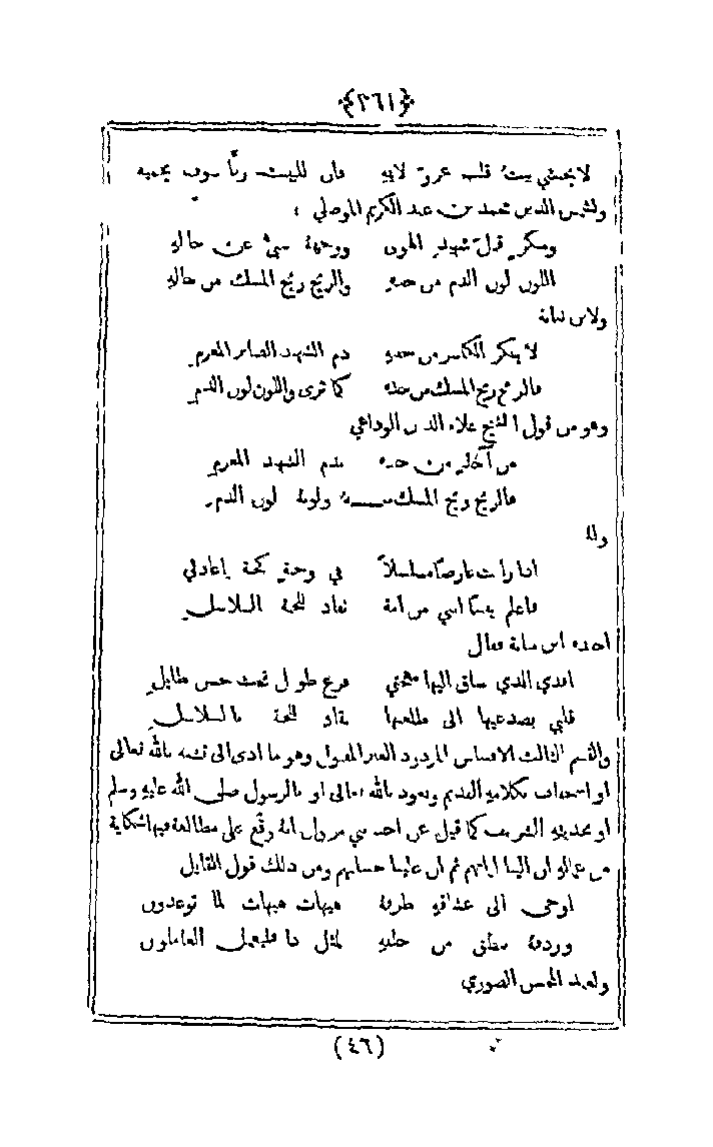 ﴿٣٦١﴾
لا يختشي بيتُ قلب عمروٌ لابهِ فان للبيت ربًّا سوف يحميه
ولشمس الدين محمد بن عبد الكريم الموصلي :
ومنكرٍ قتلَ شهيدِ الهوى ووجههُ ينبئُ عن حالهِ
اللون لون الدم من خدهِ والريح ريح المسك من خالهِ
ولابن نباتة
لا ينكر الكاسر من جفنه دم الشهيد الصابر المغرمِ
فالريح ريح المسك من خده كما ترى واللون لون الدمِ
وهو من قول الشيخ علاء الدين الوداعي
من آخذٍ من خده بدم الشهيد المغرمِ
فالريح ريح المسك منـــهُ ولونهُ لون الدمِ
وله
اذا رايت عارضًا مسلسلاً في وجنةٍ كجنةٍ يا عاذلي
فاعلم يقينًا انني من امة تقاد للجنة بالسلاسلِ
اخذه ابن نباتة فقال
افدي الذي ساق اليها مهجتي فرع طويل تحت حسن طايلِ
قلبي بصدغيها الى طلعتها يقاد للجنة بالسلاسلِ
والقسم الثالث الاقتباس المردود الغير المقبول وهو ما ادى الى تشبه بالله تعالى
او استخفاف بكلامهِ القديم ونعوذ بالله تعالى او بالرسول صلى الله عليهِ وسلم
او بحديثهِ الشريف كما قيل عن احد بني مروان انهُ وقَّع على مطالعة فيها شكاية
من عمالهِ ان الينا ايابهم ثم ان علينا حسابهم ومن ذلك قول القايل
اوحى الى عشاقهِ طرفهُ هيهات هيهات لما توعدون
وردفهُ ينطق من خلفهِ لمثل ذا فليعمل العاملون
ولعبد المحسن الصوري
(٤٦)